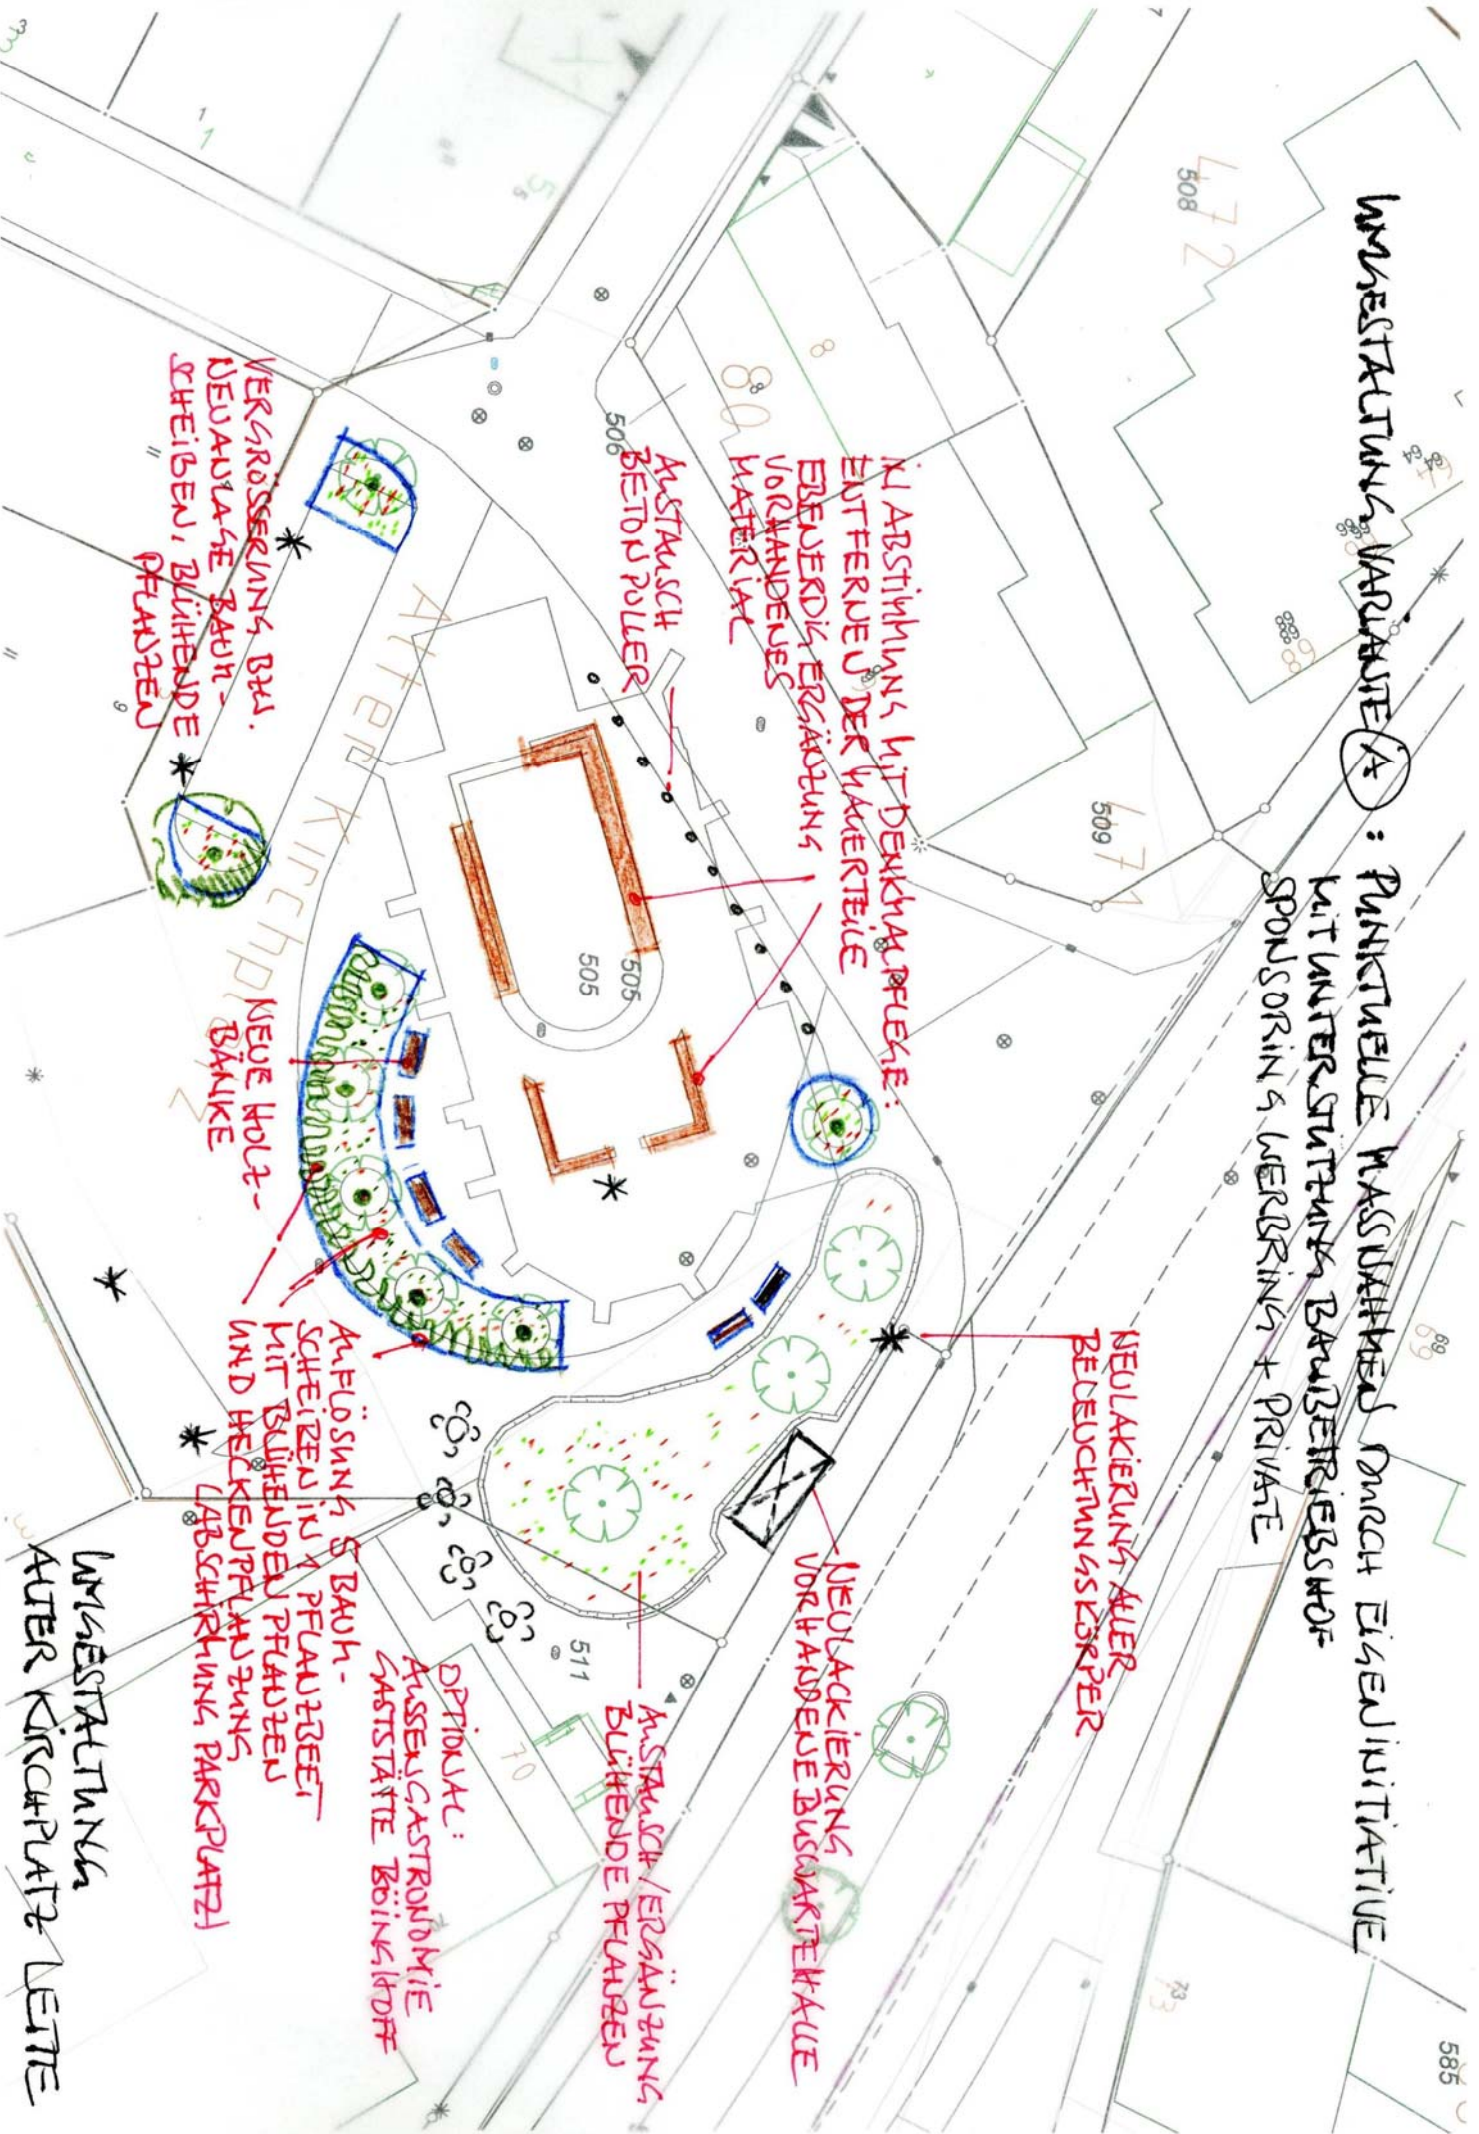 UMGESTALTUNG VARIANTE A : PUNKTUELLE MASSNAHMEN DURCH EIGENINITIATIVE
MIT UNTERSTÜTZUNG BAUBETRIEBSHOF
SPONSORING WERBRING + PRIVATE
IN ABSTIMMUNG MIT DENKMALPFLEGE:
ENTFERNEN DER MAUERTEILE
EBENERDIG ERGÄNZUNG
VORHANDENES
MATERIAL
AUSTAUSCH
BETONPOLLER
VERGRÖSSERUNG BZW.
NEUANLAGE BAUM-
SCHEIBEN, BLÜHENDE
PFLANZEN
NEUE HOLZ-
BÄNKE
NEULAKIERUNG ALLER
BELEUCHTUNGSKÖRPER
NEULACKIERUNG
VORHANDENE BUSWARTEHALLE
AUSTAUSCH/ERGÄNZUNG
BLÜHENDE PFLANZEN
OPTIONAL:
AUSSENGASTRONOMIE
GASTSTÄTTE BÖINGHOFF
AUFLÖSUNG 5 BAUM-
SCHEIBEN IN 1 PFLANZBEET
MIT BLÜHENDEN PFLANZEN
UND HECKENPFLANZUNG
(ABSCHIRMUNG PARKPLATZ)
UMGESTALTUNG
ALTER KIRCHPLATZ LETTE
Alter Kirchplatz
472
508
471
509
506
80
8
8
505
505
511
585
70
69
69
73
73
68
64
64
1
1
5
5
9
11
11
3
3
3